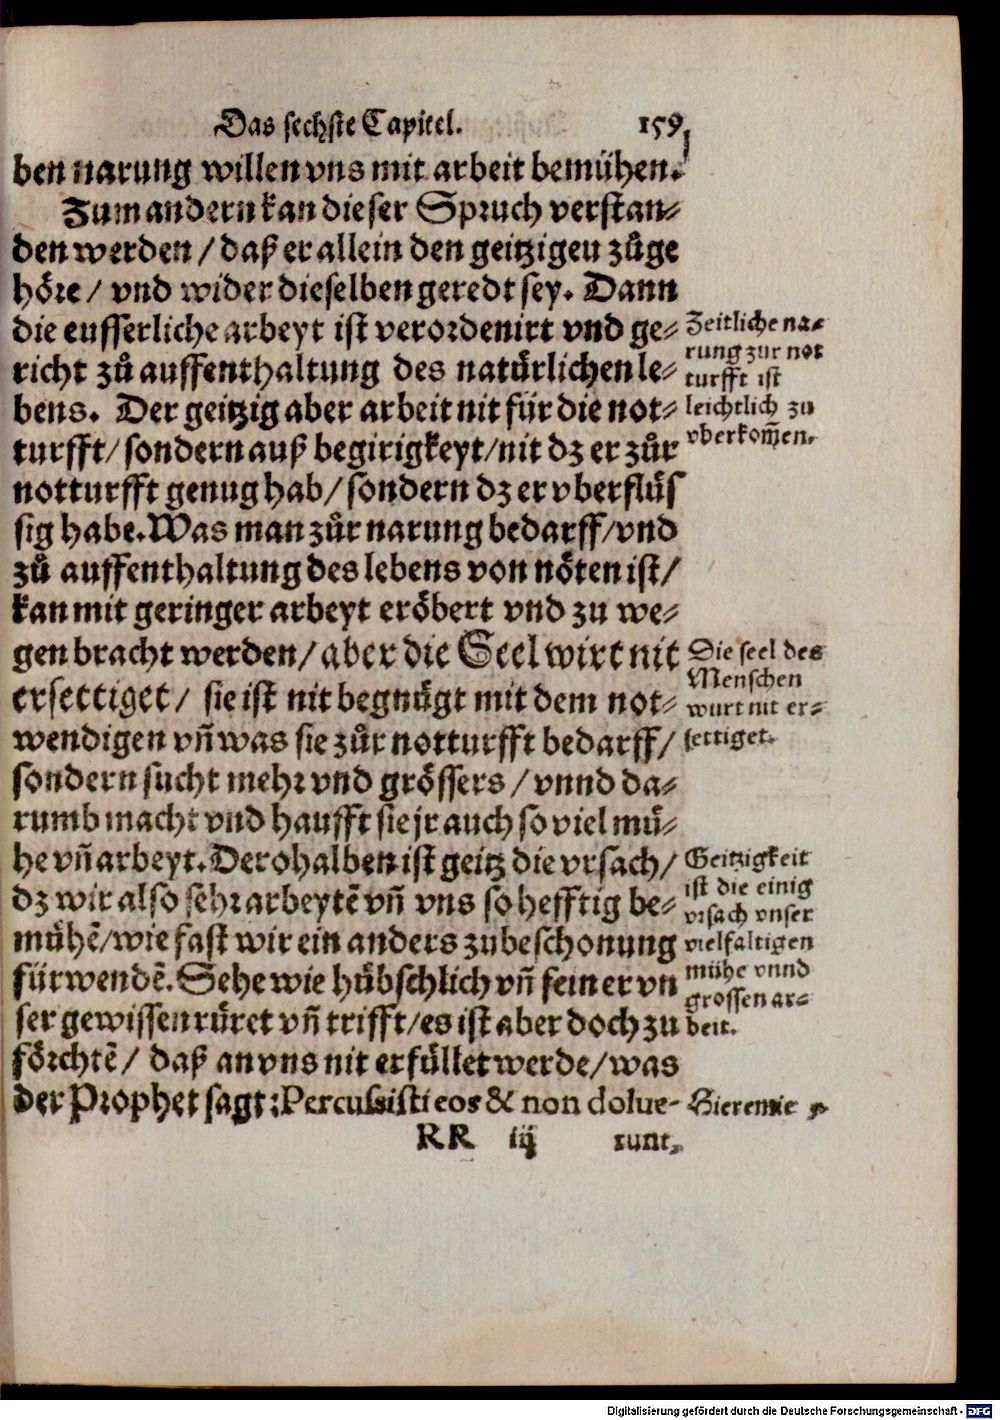 Das sechste Capitel. 159
ben narung willen vns mit arbeit bemühen.
Zum andern kan dieser Spruch verstan-
den werden / daß er allein den geitzigen zůge
höre / vnd wider dieselben geredt sey. Dann
die eusserliche arbeyt ist verordenirt vnd ge-
richt zů auffenthaltung des natürlichen le-
bens. Der geitzig aber arbeit nit für die not-
turfft / sondern auß begirigkeyt / nit dz er zůr
notturfft genug hab / sondern dz er vberflüs
sig habe. Was man zůr narung bedarff / vnd
zů auffenthaltung des lebens von nöten ist /
kan mit geringer arbeyt eröbert vnd zu we-
gen bracht werden / aber die Seel wirt nit
ersettiget / sie ist nit begnügt mit dem not-
wendigen vñ was sie zůr notturfft bedarff /
sondern sucht mehr vnd grössers / vnnd da-
rumb macht vnd haufft sie jr auch so viel mü-
he vñ arbeyt. Derohalben ist geitz die vrsach /
dz wir also sehr arbeytẽ vñ vns so hefftig be-
mühẽ / wie fast wir ein anders zubeschonung
fürwendẽ. Sehe wie hübschlich vñ fein er vn
ser gewissen rüret vñ trifft / es ist aber doch zu
förchtẽ / daß an vns nit erfüllet werde / was
der Prophet sagt: Percussisti eos & non dolue-
RR iij runt,
Zeitliche na-
rung zur not
turfft ist
leichtlich zu
vberkom̃en.
Die seel des
Menschen
wurt nit er-
settiget.
Geitzigkeit
ist die einig
vrsach vnser
vielfaltigen
mühe vnnd
grossen ar-
beit.
Hieremie 5.
Digitalisierung gefördert durch die Deutsche Forschungsgemeinschaft - DFG